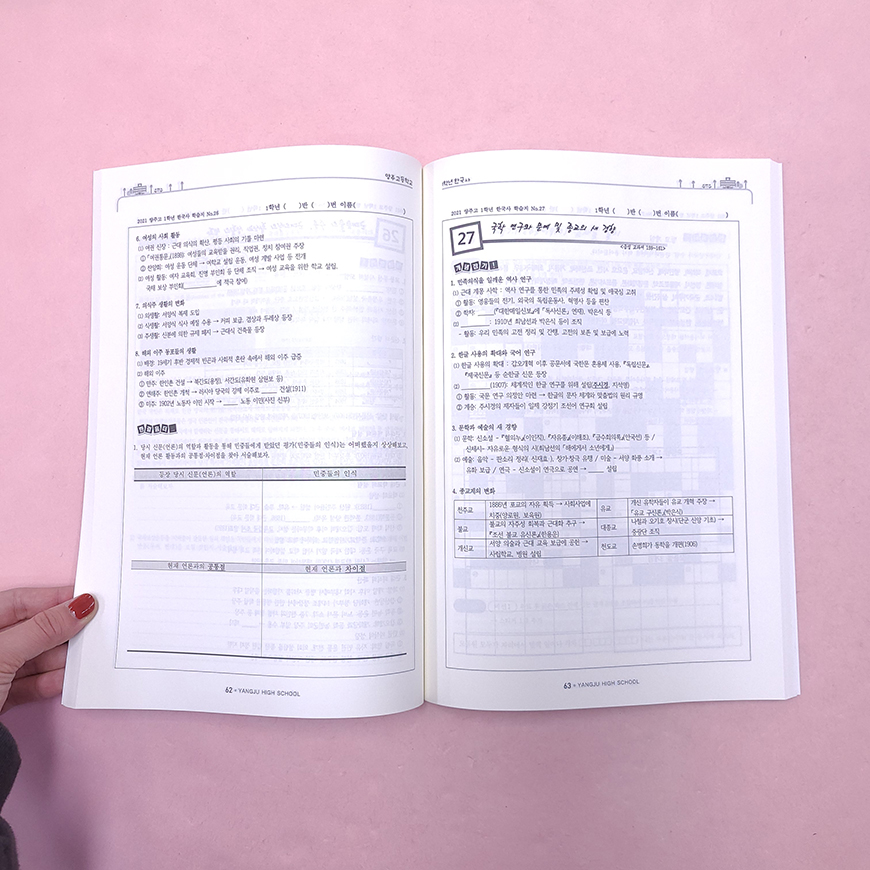 양주고등학교
2021 양주고 1학년 한국사 학습지 No.26 1학년 ( )반 ( )번 이름( )
6. 여성의 사회 활동
(1) 여권 신장 : 근대 의식의 확산, 평등 사회의 기틀 마련
① 『여권통문』(1898): 여성들의 교육받을 권리, 직업권, 정치 참여권 주장
② 찬양회: 여성 운동 단체 → 여학교 설립 운동, 여성 계발 사업 등 전개
(2) 여성 활동: 여자 교육회, 진명 부인회 등 단체 조직 → 여성 교육을 위한 학교 설립,
국채 보상 부인회(에 적극 참여)
7. 의식주 생활의 변화
(1) 의생활: 서양식 복제 도입
(2) 식생활: 서양식 식사 예절 수용 → 커피 보급, 겸상과 두레상 등장
(3) 주생활: 신분에 의한 규제 폐지 → 근대식 건축물 등장
8. 해외 이주 동포들의 생활
(1) 배경: 19세기 후반 경제적 빈곤과 사회적 혼란 속에서 해외 이주 급증
(2) 해외 이주
① 만주: 한인촌 건설 → 북간도(용정), 서간도(유하현 삼원보 등)
② 연해주: 한인촌 개척 → 러시아 당국의 강력 이주로 _____ 건설(1911)
③ 미주: 1902년 노동자 이민 시작 → _____ 노동 이민(사진 신부)
1. 당시 신문(언론)의 역할과 활동을 통해 민중들에게 받았던 평가(민중들의 인식)는 어떠했을지 상상해보고,
현재 언론 활동과의 공통점·차이점을 찾아 서술해보자.
등장 당시 신문(언론)의 역할 민중들의 인식
현재 언론과의 공통점 현재 언론과 차이점
62 + YANGJU HIGH SCHOOL
1학년 한국사
2021 양주고 1학년 한국사 학습지 No.27 1학년 ( )반 ( )번 이름( )
27 국학 연구와 문예 및 종교의 새 경향
개념쌓기 1
1. 민족의식을 일깨운 역사 연구
(1) 근대 계몽 사학 : 역사 연구를 통한 민족의 주체성 확립 및 애국심 고취
① 활동: 영웅들의 전기, 외국의 독립운동사, 혁명사 등을 편찬
② 학자: _____(『대한매일신보』에 『독사신론』 연재), 박은식 등
(2) _____ : 1910년 최남선과 박은식 등이 조직
- 활동: 우리 민족의 고전 정리 및 간행, 고전의 보존 및 보급에 노력
2. 한글 사용의 확대와 국어 연구
(1) 한글 사용의 확대 : 갑오개혁 이후 공문서에 국한문 혼용체 사용, 『독립신문』,
『제국신문』 등 순한글 신문 등장
(2) _____(1907): 체계적인 한글 연구를 위해 설립(주시경, 지석영)
① 활동: 국문 연구 의정안 마련 → 한글의 문자 체계와 맞춤법의 원리 규명
② 계승: 주시경의 제자들이 일제 강점기 조선어 연구회 설립
3. 문학과 예술의 새 경향
(1) 문학: 신소설 - 『혈의누』(이인직), 『자유종』(이해조), 『금수회의록』(안국선) 등 /
신체시- 자유로운 형식의 시(최남선의 『해에게서 소년에게』)
(2) 예술: 음악 - 판소리 정리( 신재효 ), 창가·창극 유행 / 미술 - 서양 화풍 소개 →
유화 보급 / 연극 - 신소설이 연극으로 공연 → _____ 설립
4. 종교계의 변화
천주교 1886년 포교의 자유 획득 → 사회사업에 치중(양로원, 보육원) 유교 개신 유학자들이 유교 개혁 주장 → 『유교 구신론』(박은식)
불교 불교의 자주성 회복과 근대화 추구 → 『조선 불교 유신론』(한용운) 대종교 나철과 오기호 창시(단군 신앙 기초) → 중광단 조직
개신교 서양 의술과 근대 교육 보급에 공헌 → 사립학교, 병원 설립 천도교 손병희가 동학을 개편(1906)
63 + YANGJU HIGH SCHOOL